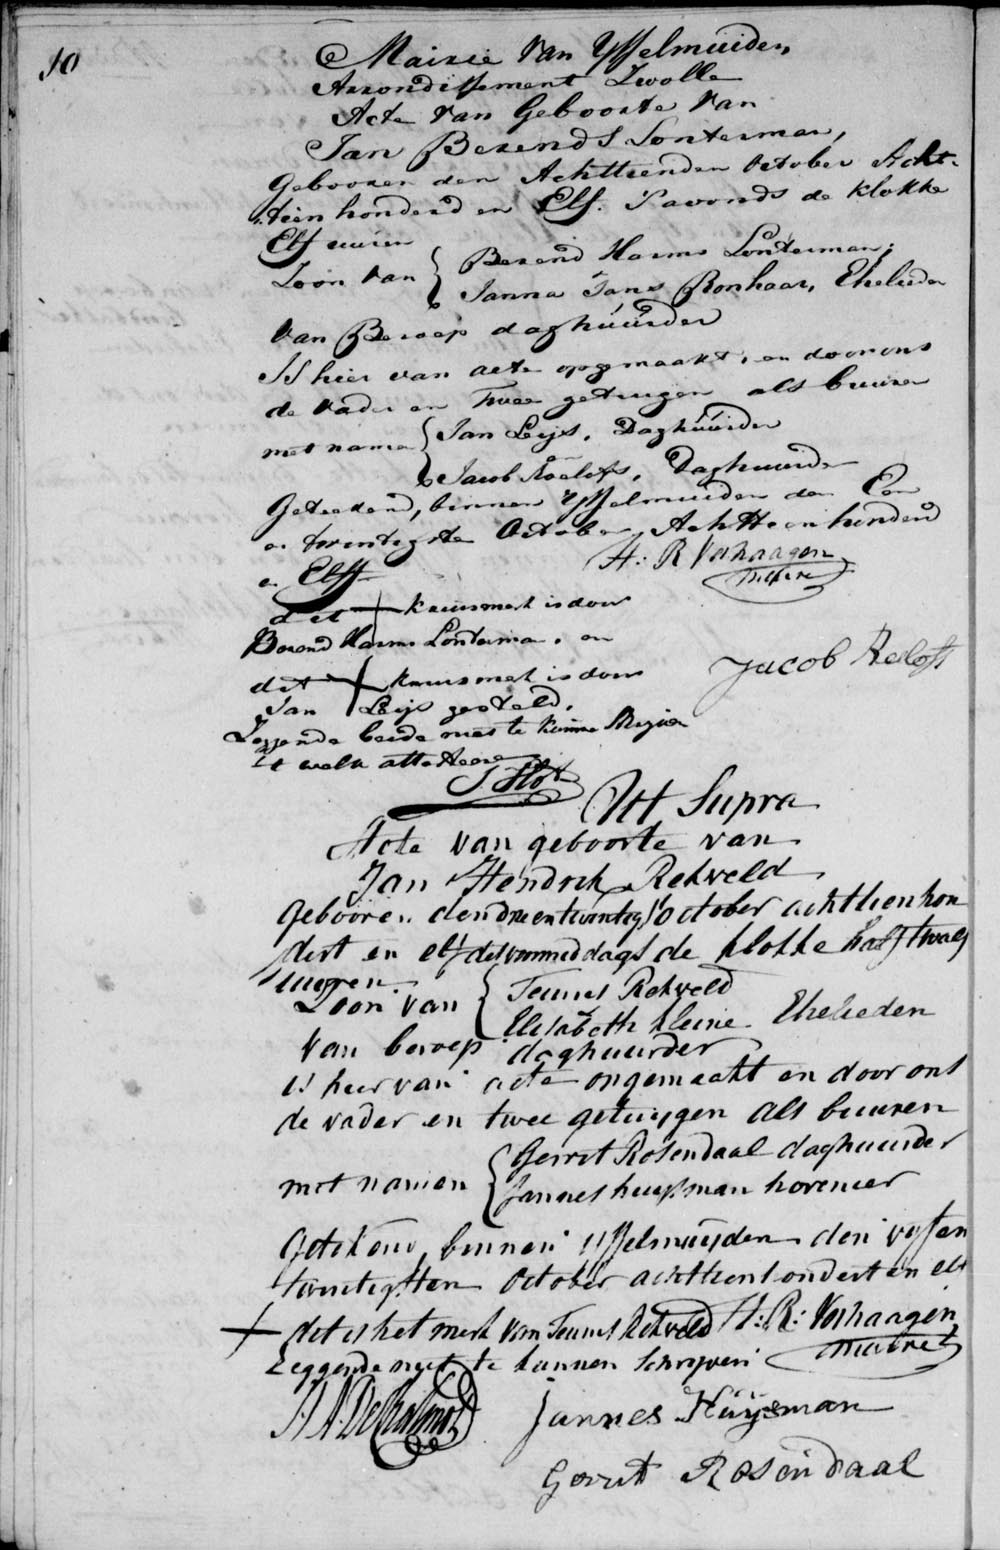 10
Mairie van Ysselmuiden
Arrondissement Zwolle
Acte van Geboorte van
Jan Berends Lonterman,
Gebooren den Achttienden October Acht-
tien honderd en Elf. Savonds de klokke
Elf uuren
Zoon van { Berend Harms Lonterman,
Janna Jans Bonhaar, Ehelieden
van Beroep daghuurder
Is hier van acte opgemaakt, en door ons
de vader en Twee getuigen als buuren
met name { Jan Leijs, Daghuurder
Jacob Roelofs, Daghuurder
Geteekend, binnen Ysselmuiden den Een
en twintigste October Achttien honderd
en Elf
H: R Verhaagen
maire
dit + kruismerk is door
Berend Harms Lonterman, en
dit + kruismerk is door
Jan Leijs gesteld,
Jacob Reelofs
Zeggende beide niet te kunnen
't welk attesteere
Ut Supra
Acte van geboorte van
Jan Hendrik Rekveld
Gebooren den drieentwintigs October achttienhon
dert en elf des voormiddags de klokke half twalf
uuren
Zoon van { Teunes Rekveld
Elisabeth kleine Ehelieden
Van beroep daghuurder
is hier van acte opgemaakt en door ons
de vader en twee getuijgen als buuren
met namen { Gerrit Rosendaal daghuurder
Jannes huijsman hovenier
Getekend, binnen ijsselmuijden den vijfen
twintigsten October achttienhondert en elf
+ dit is het merk van Teunes Rekveld H: R: Verhaagen
Zeggende niet te kunnen schrijven maire
Jannes Huijsman
Gerrit Rosendaal